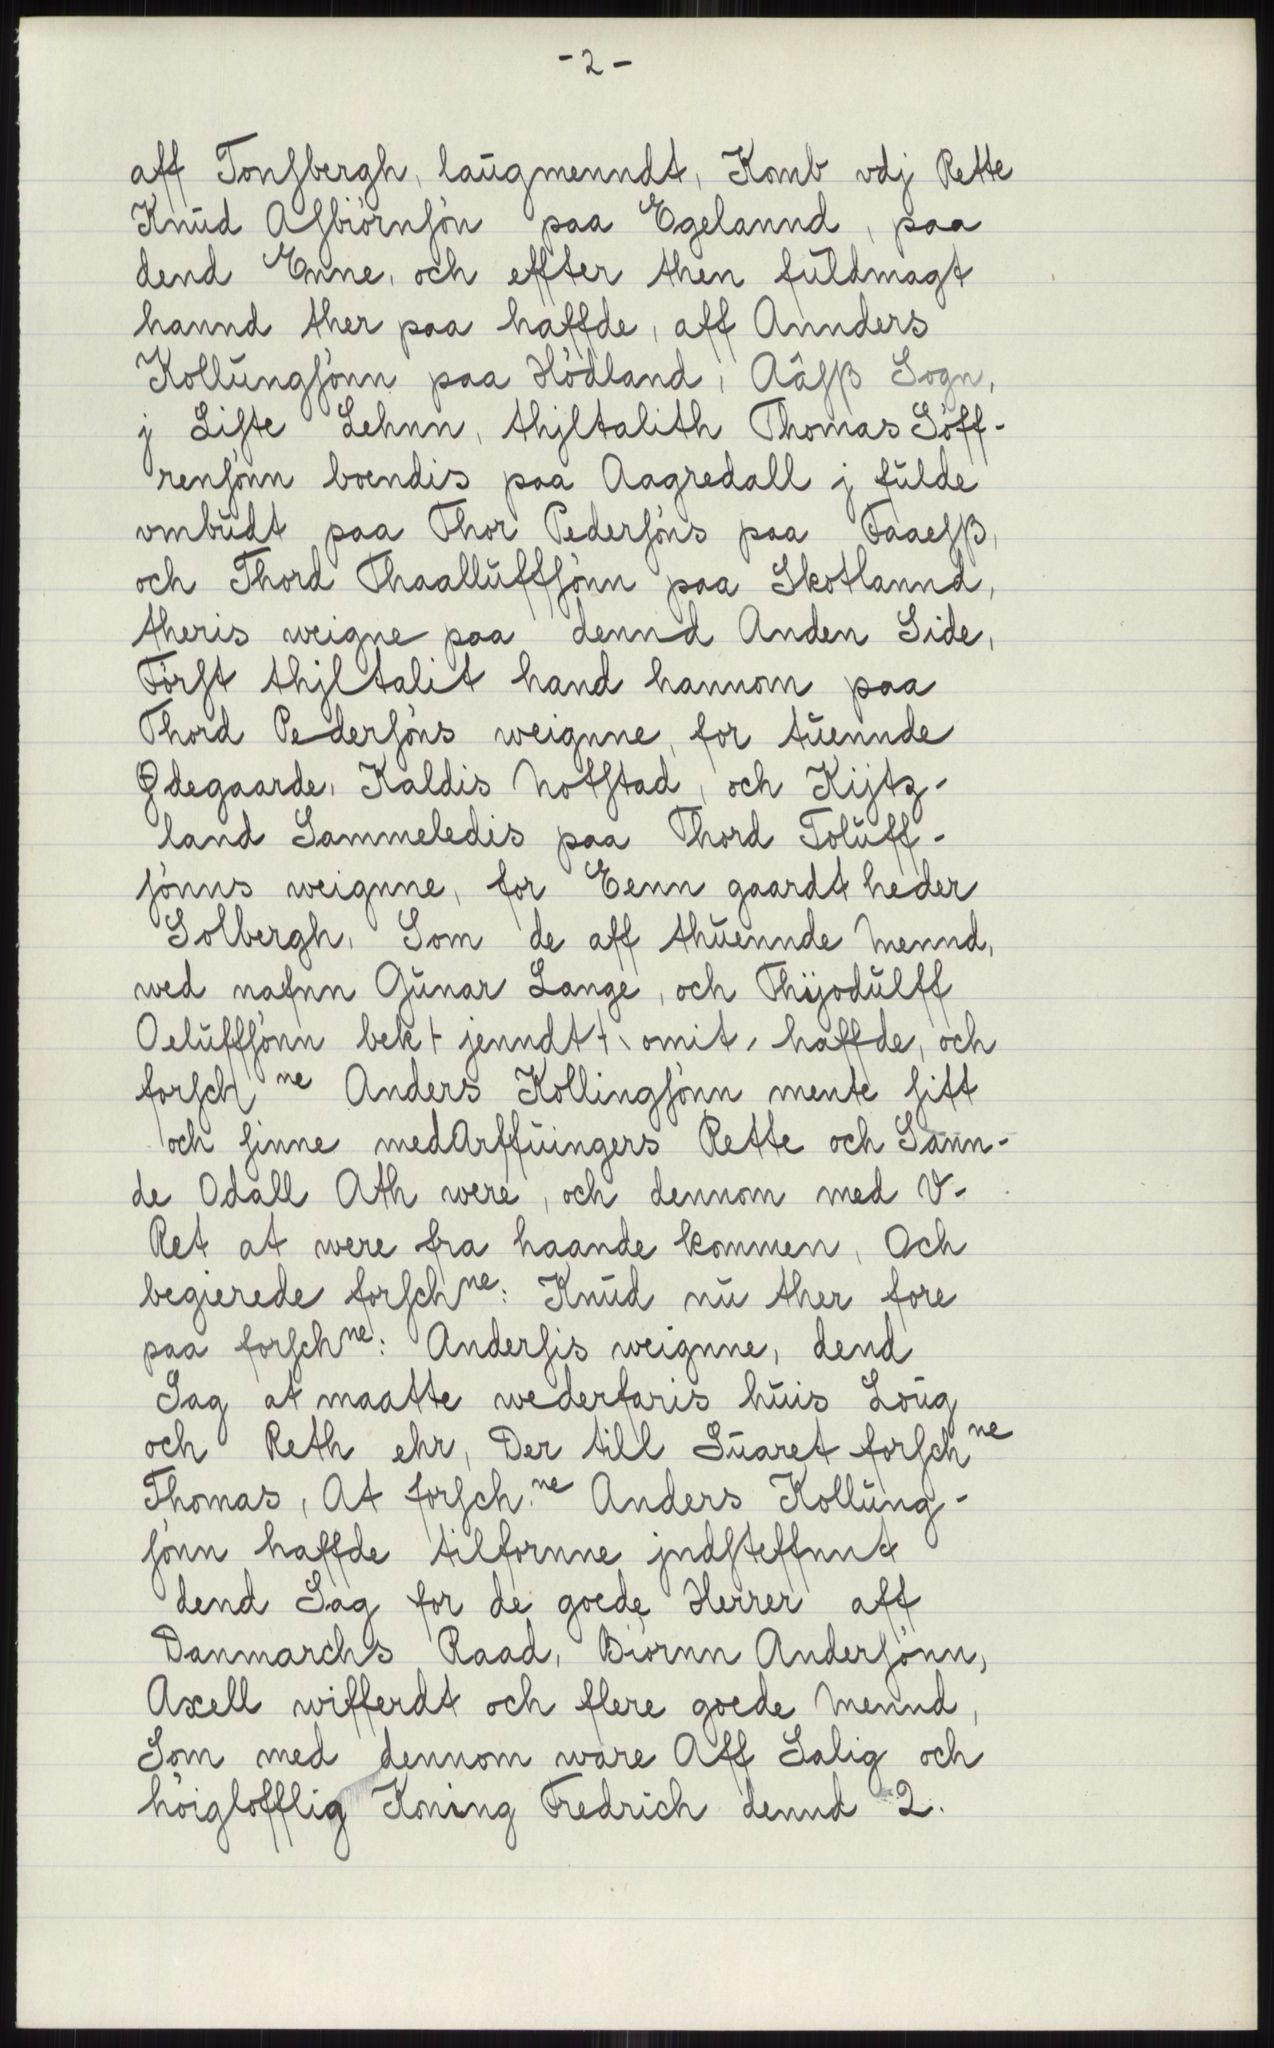 - 2 -
aff Tonſbergh, laŭgmenndt, Komb vdj Rette
Knŭd Aſbiörnſön paa Egelannd, paa
dend Enne, och effter then fŭldmagt
hannd ther paa haffde, aff Annders
Kollŭngſönn paa Hödland, Aâſß Sogn,
j Liſte Lehnn, thjltalith Thomas Söff-
renſönn boendis paa Aagredall j fŭlde
vmbŭdt paa Thor Pederſöns paa Faaeſß,
och Thord Thaallŭffſönn paa Skotlannd,
theris weigne paa dennd Anden Side,
Förſt thjltalit hand hannom paa
Thord Pederſöns weignne, for tŭennde
Ødegaarde, Kaldis Notſtad, och Kijtz-
land Sammeledis paa Thord Tolŭff-
ſönns weignne, for Eenn gaardt heder
Solbergh, Som de aff thŭennde Mennd,
wed nafnn Gŭnar Lange, och Thijodŭlff
Oelŭffſönn bek + jenndt + omit, haffde, och
forſch ne Anders Kollingſönn mente ſitt
och ſinne medArffŭingers Rette och Sann-
de Odall Ath were, och dennom med V-
Ret at were fra haande kommen, Och
begierede forſch ne: Knŭd nŭ ther fore
paa forſch ne: Anderſis weignne, dend
Sag at maatte wederfaris hŭis Loŭg
och Reth ehr, Der till Sŭaret forſch ne
Thomas, At forſch. ne Anders Kollŭng-
ſönn haffde tilfornne jndſteffnnt
dend Sag for de goede Herrer aff
Danmarchs Raad, Biörnn Anderſönn,
Axell wifferdt och flere goede Mennd,
Som med dennom ware Aff Salig och
höiglofflig Koning Fredrich dennd 2.